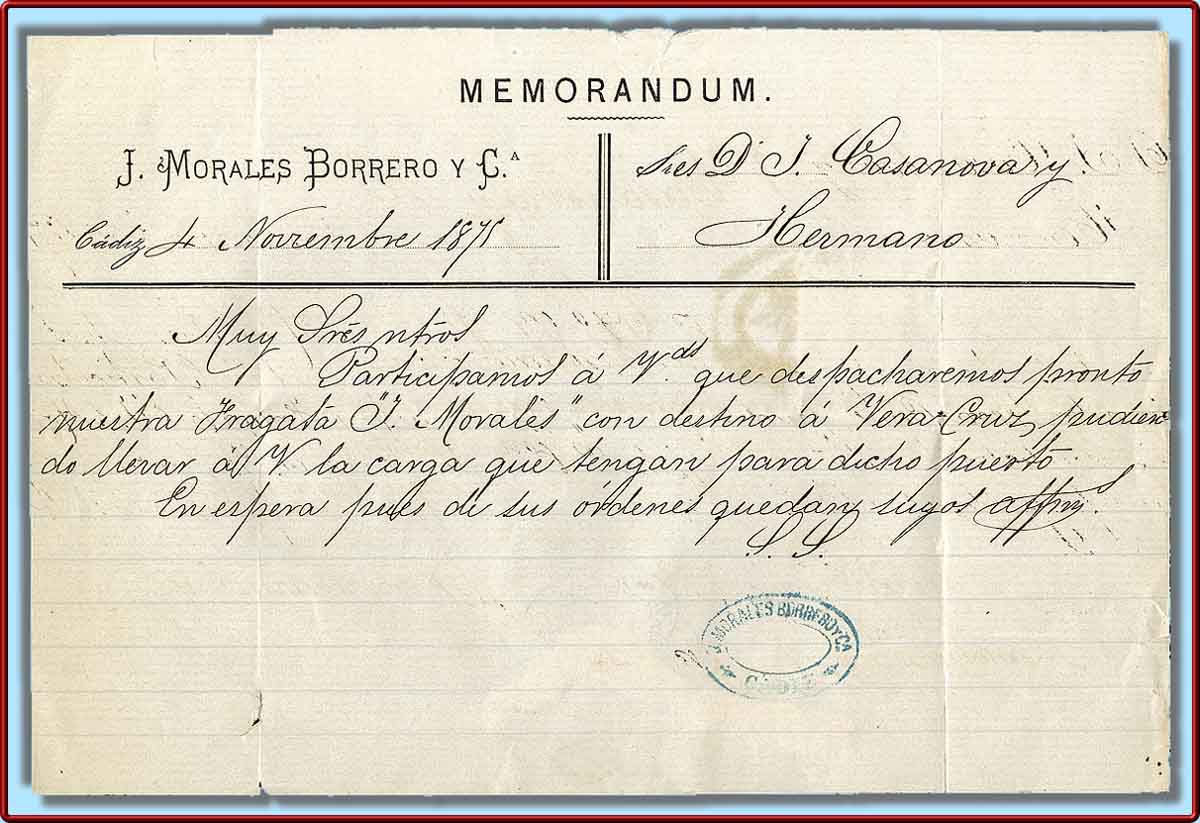 MEMORANDUM.
J. MORALES BORRERO Y C.A
Cádiz 4 Noviembre 1875
Sres D J. Casanova y
Hermano
Muy Srēs ntrōs
Participamos á V.ds que despacharemos pronto
nuestra Fragata "J. Morales" con destino á Vera-Cruz, pudien
do llevar á V la carga que tengan para dicho puerto.
En espera pues de sus órdenes quedan suyos affmos.
S. S.
J. MORALES BORRERO Y CA
CÁDIZ